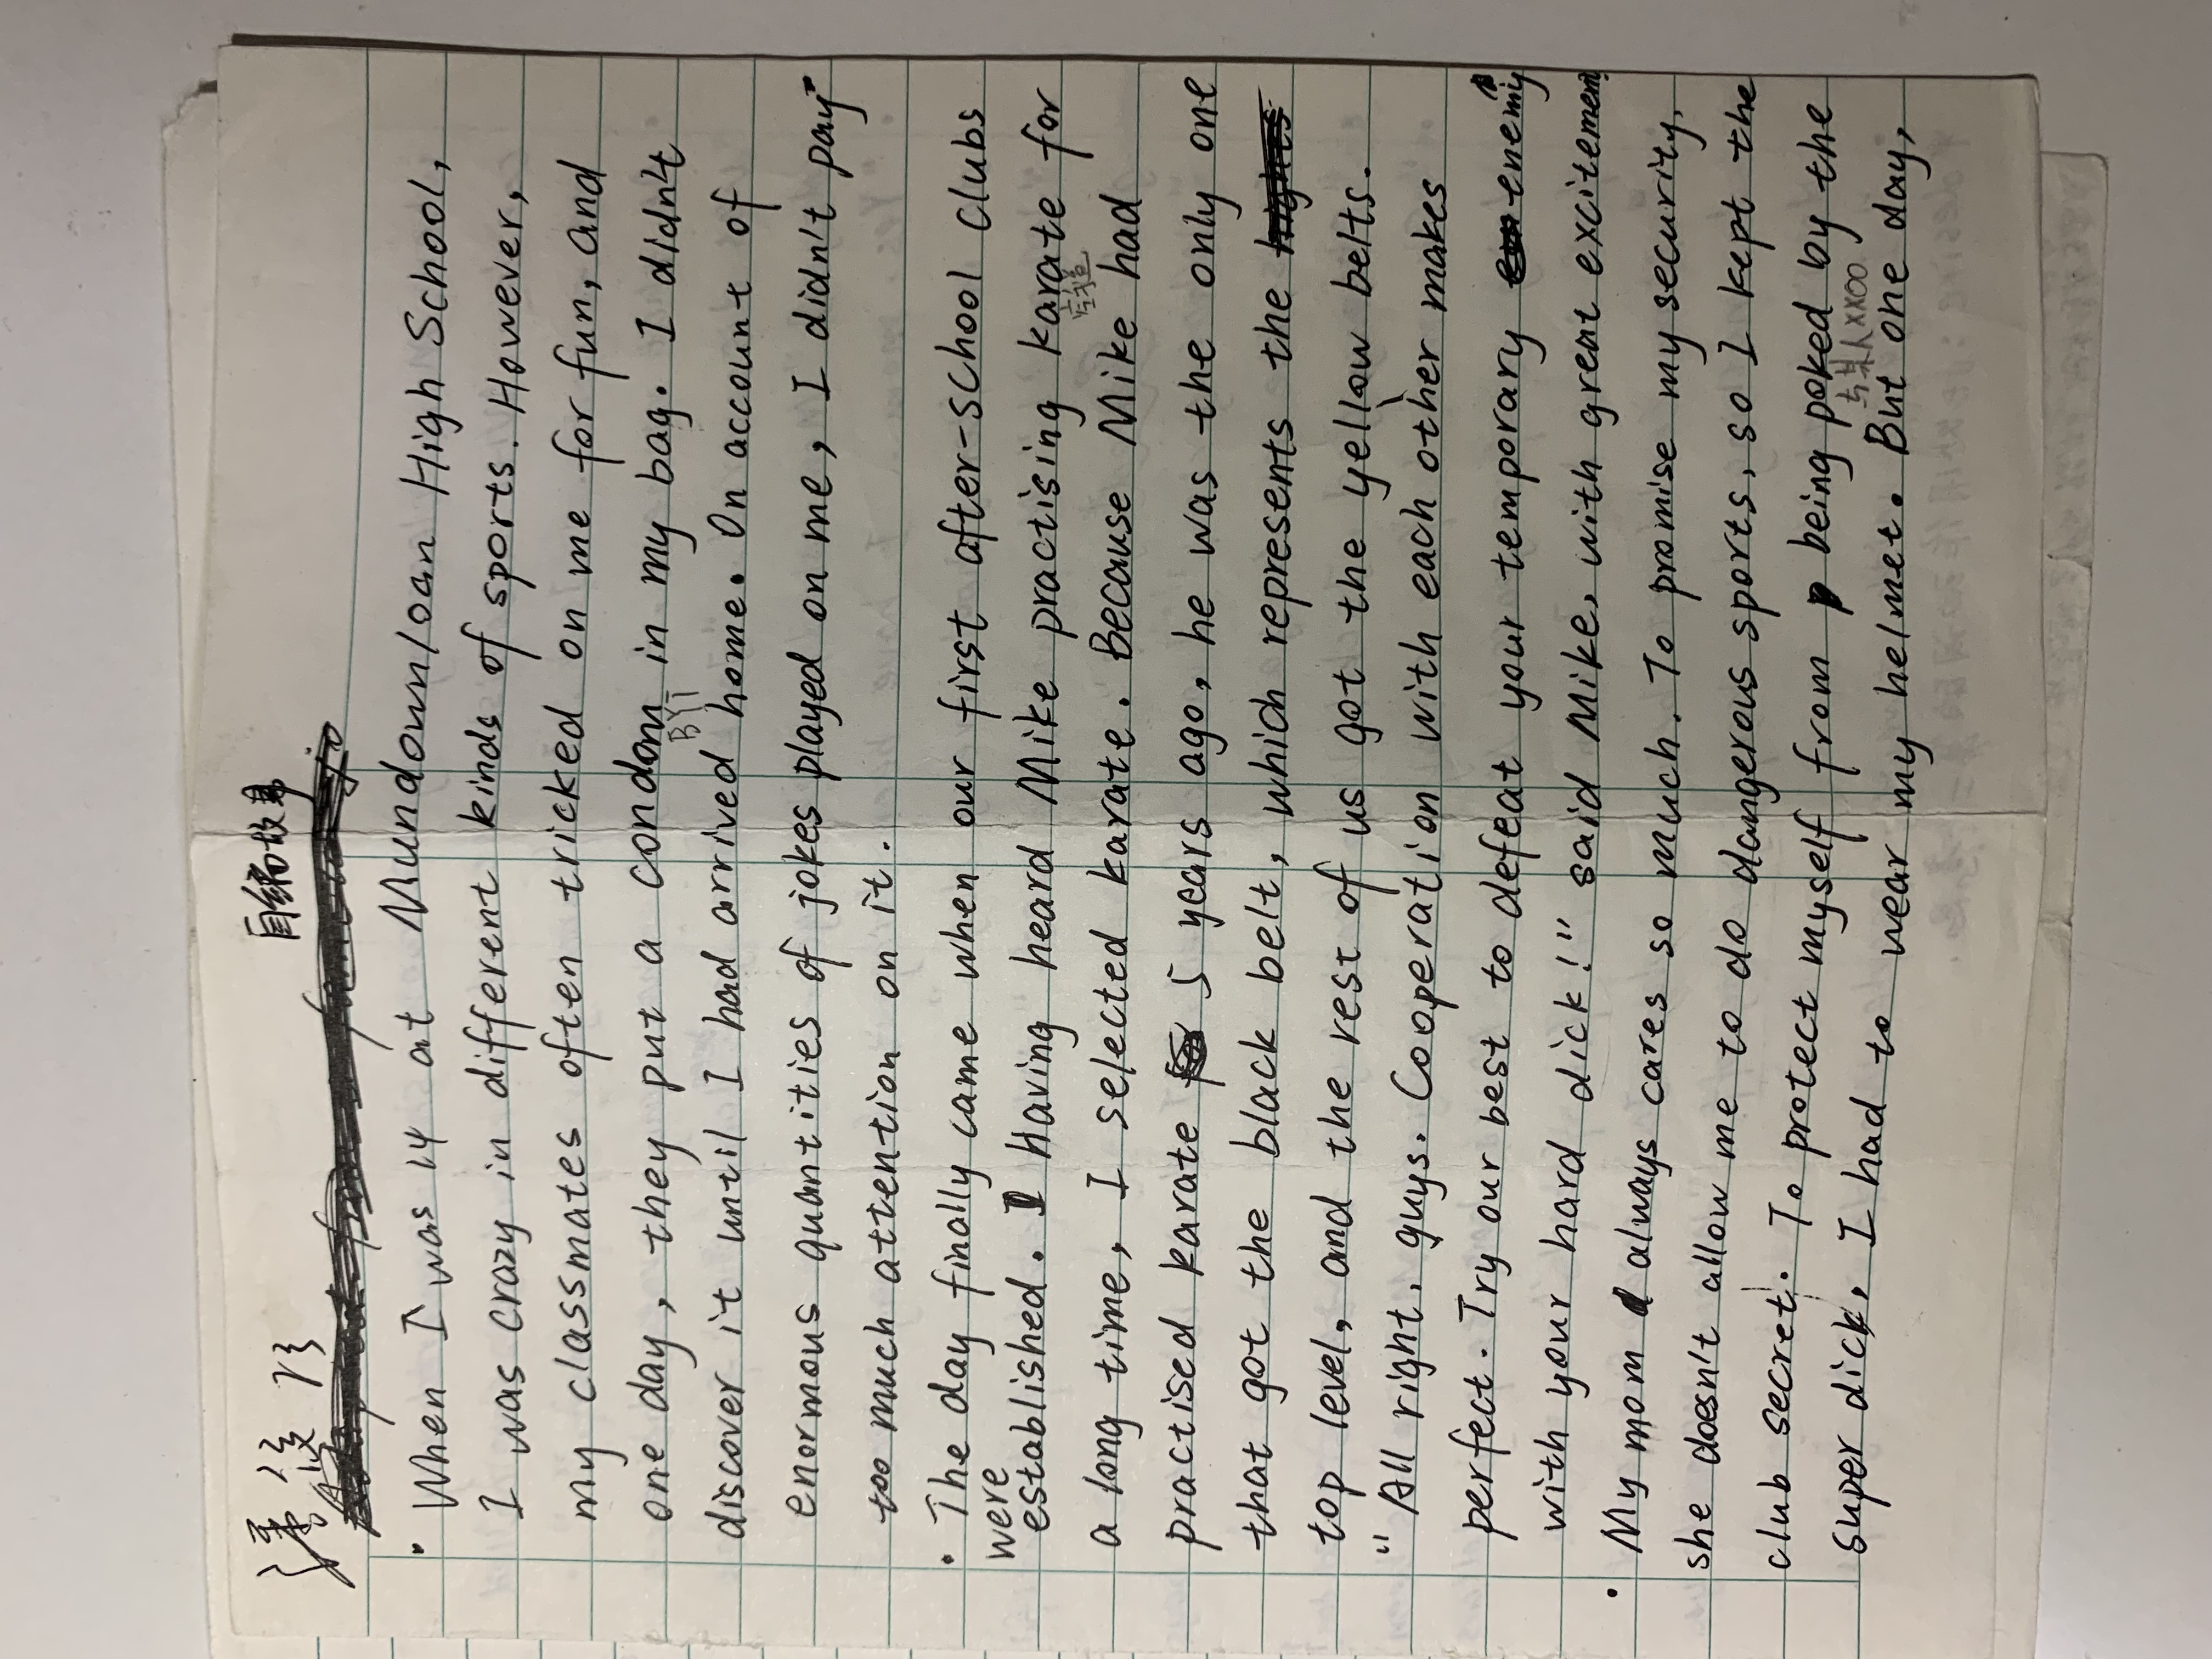 自编故事
When I was 14 at Mundownloan High School,
I was crazy in different kinds of sports. However,
my classmates often tricked on me for fun, and
one day, they put a condom in my bag. I didn't
BYT
discover it until I had arrived home. On account of
enormous quantities of jokes played on me, I didn't pay
too much attention on it.
The day finally came when our first after-school clubs
were
established. Having heard Mike practising karate for
空手道
a long time, I selected karate. Because Mike had
practised karate 5 years ago, he was the only one
that got the black belt, which represents the
top level, and the rest of us got the yellow belts.
"All right, guys. Cooperation with each other makes
perfect. Try our best to defeat your temporary enemy
with your hard dick!" said Mike, with great excitement
My mom always cares so much. To promise my security,
she doesn't allow me to do dangerous sports, so I kept the
club secret. To protect myself from being poked by the
与某人xxoo
super dick, I had to wear my helmet. But one day,